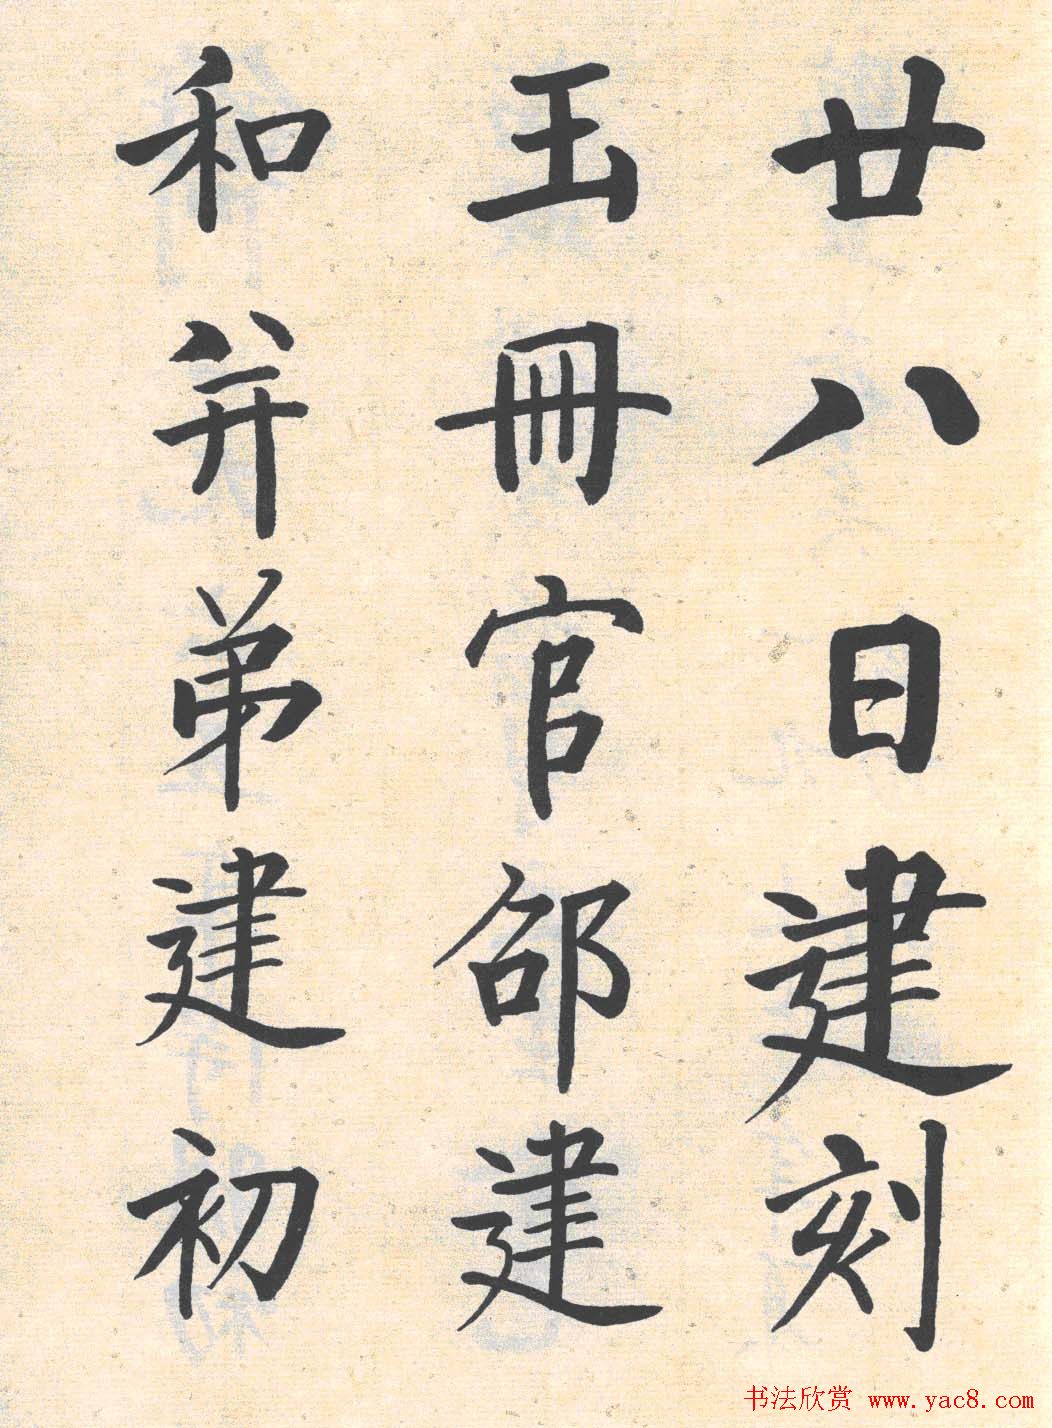 廿八日建刻
玉冊官邵建
和并弟建初
书法欣赏 www.yac8.com